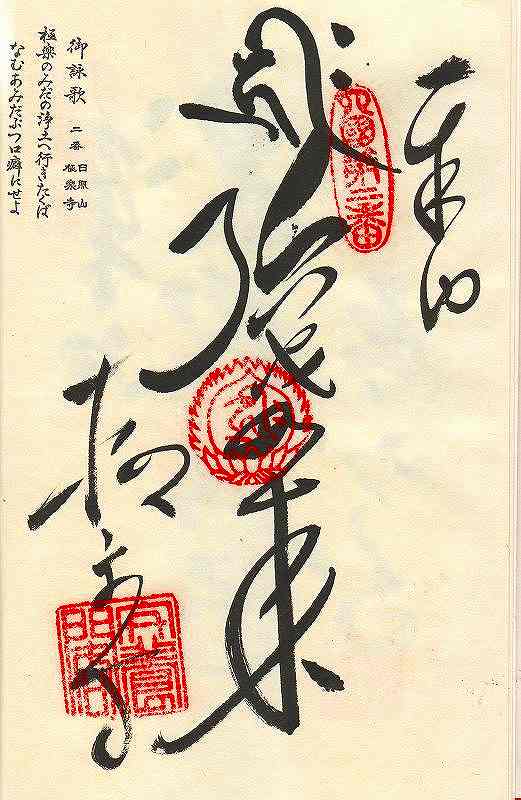 奉納
四國第二番
弥陀如来
極楽寺
御詠歌 二番 日照山 極楽寺
極楽のみだの浄土へ行きたくば
なむあみだぶつ口癖にせよ